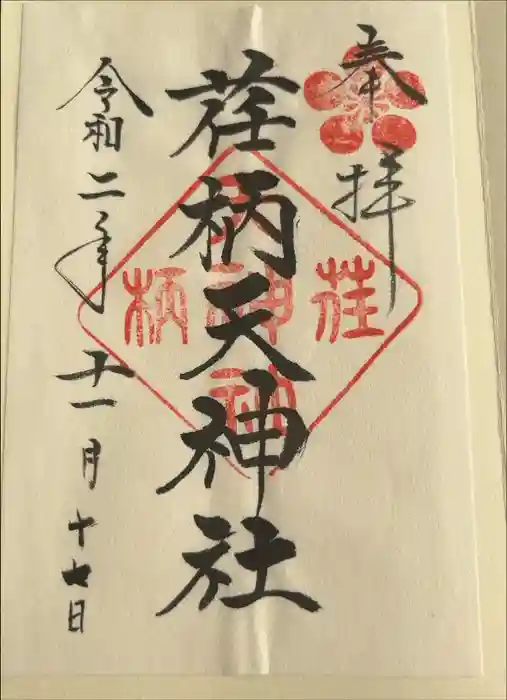 奉拝
荏柄天神社
荏柄天神社
令和二年十一月十七日